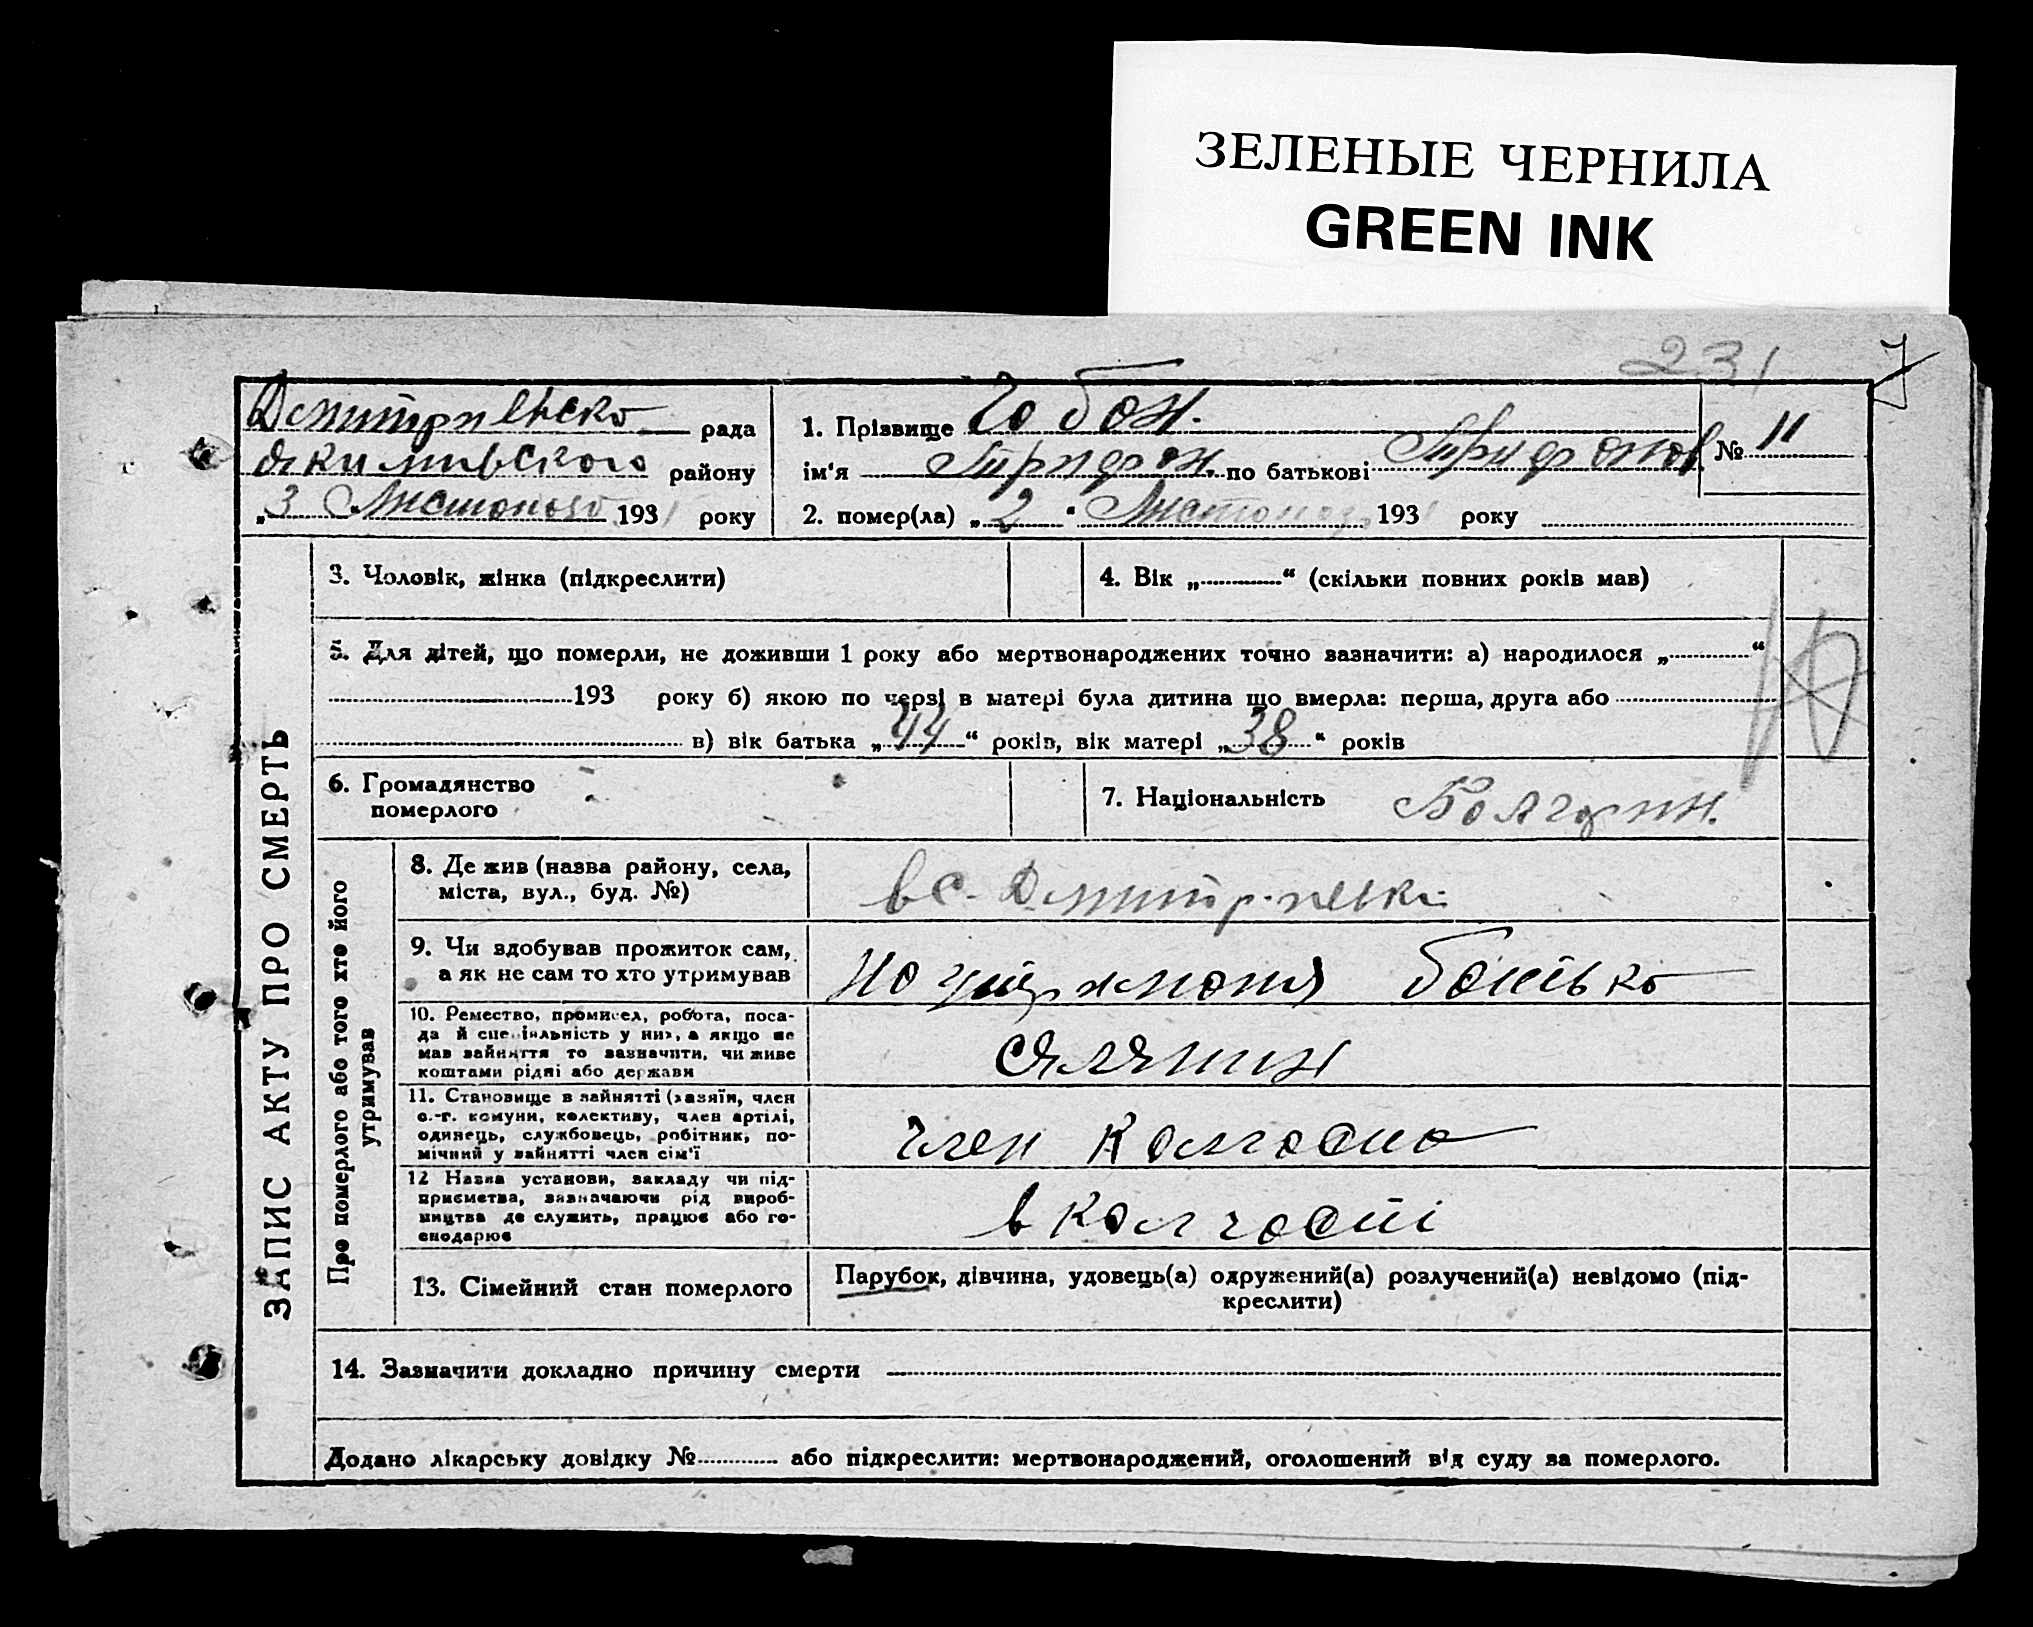 ЗЕЛЕНЫЕ ЧЕРНИЛА
GREEN INK
231
Дмитриевско рада
Якимивського району
„3" Листопада 1931 року
1. Прізвище Чобан.
ім'я Тріфон, по батькові Тріфонов
№ 11
2. помер(ла) „2" Листопад 193 року
ЗАПИС АКТУ ПРО СМЕРТЬ
3. Чоловік, жінка (підкреслити)
4. Вік „ " (скільки повних років мав)
5. Для дітей, що померли, не доживши 1 року або мертвонароджених точно зазначити: а) народилося „ "
193 року б) якою по черзі в матері була дитина що вмерла: перша, друга або
в) вік батька „44" років, вік матері „38" років
6. Громадянство
померлого
7. Національність Болгарин.
Про померлого або того хто його
утримував
8. Де жив (назва району, села,
міста, вул., буд. №)
в с.
9. Чи здобував прожиток сам,
а як не сам то хто утримував
на утрыманя батько
10. Ремество, промисел, робота, поса-
да й спеціяльність у них, а якщо не
мав зайняття то зазначити, чи живе
коштами рідні або держави
Сялянин
11. Становище в зайнятті (хазяїн, член
с.-г. комуни, колективу, член артілі,
одинець, службовець, робітник, по-
мічний у зайнятті член сім'ї
член колгоспа
12 Назва установи, закладу чи під-
приємства, зазначаючи рід вироб-
ництва де служить, працює або го-
сподарює
в колгоспі
13. Сімейний стан померлого
Парубок, дівчина, удовець(а) одружений(а) розлучений(а) невідомо (під-
креслити)
14. Зазначити докладно причину смерти
Додано лікарську довідку № або підкреслити: мертвонароджений, оголошений від суду за померлого.